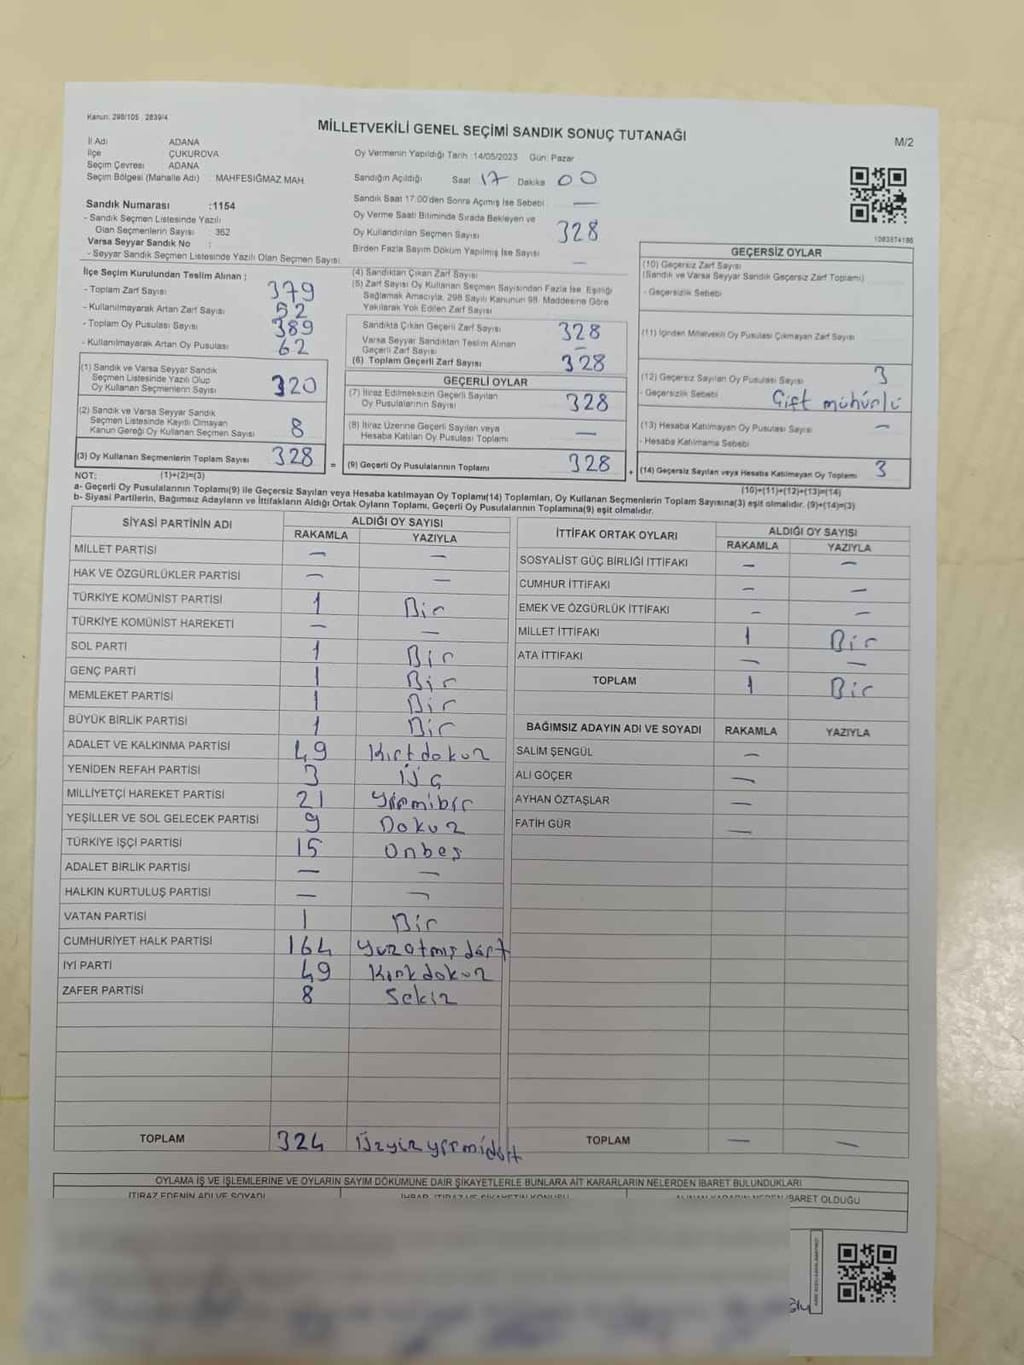 Kanun: 298/105 , 2839/4
MİLLETVEKİLİ GENEL SEÇİMİ SANDIK SONUÇ TUTANAĞI
M/2
İl Adı ADANA
İlçe ÇUKUROVA
Seçim Çevresi ADANA
Seçim Bölgesi (Mahalle Adı) MAHFESIĞMAZ MAH.
Oy Vermenin Yapıldığı Tarih :14/05/2023 Gün: Pazar
Sandığın Açıldığı Saat 17 Dakika 00
Sandık Numarası :1154
- Sandık Seçmen Listesinde Yazılı
Olan Seçmenlerin Sayısı 362
Varsa Seyyar Sandık No :
- Seyyar Sandık Seçmen Listesinde Yazılı Olan Seçmen Sayısı:
Sandık Saat 17.00'den Sonra Açımış İse Sebebi —
Oy Verme Saati Bitiminde Sırada Bekleyen ve
Oy Kullandırılan Seçmen Sayısı 328
Birden Fazla Sayım Döküm Yapılmış İse Sayısı —
1083574186
İlçe Seçim Kurulundan Teslim Alınan ;
- Toplam Zarf Sayısı 379
- Kullanılmayarak Artan Zarf Sayısı 52
- Toplam Oy Pusulası Sayısı 389
- Kullanılmayarak Artan Oy Pusulası 62
(1) Sandık ve Varsa Seyyar Sandık
Seçmen Listesinde Yazılı Olup
Oy Kullanan Seçmenlerin Sayısı 320
(2) Sandık ve Varsa Seyyar Sandık
Seçmen Listesinde Kayıtlı Olmayan
Kanun Gereği Oy Kullanan Seçmen Sayısı 8
(3) Oy Kullanan Seçmenlerin Toplam Sayısı 328 =
(4) Sandıktan Çıkan Zarf Sayısı
(5) Zarf Sayısı Oy Kullanan Seçmen Sayısından Fazla İse, Eşitliği
Sağlamak Amacıyla, 298 Sayılı Kanunun 98. Maddesine Göre
Yakılarak Yok Edilen Zarf Sayısı
Sandıkta Çıkan Geçerli Zarf Sayısı 328
Varsa Seyyar Sandıktan Teslim Alınan
Geçerli Zarf Sayısı —
(6) Toplam Geçerli Zarf Sayısı 328
GEÇERLİ OYLAR
(7) İtiraz Edilmeksizin Geçerli Sayılan
Oy Pusulalarının Sayısı 328
(8) İtiraz Üzerine Geçerli Sayılan veya
Hesaba Katılan Oy Pusulası Toplamı —
(9) Geçerli Oy Pusulalarının Toplamı 328 +
GEÇERSİZ OYLAR
(10) Geçersiz Zarf Sayısı
(Sandık ve Varsa Seyyar Sandık Geçersiz Zarf Toplamı)
- Geçersizlik Sebebi
(11) İçinden Milletvekili Oy Pusulası Çıkmayan Zarf Sayısı
(12) Geçersiz Sayılan Oy Pusulası Sayısı 3
- Geçersizlik Sebebi Çift mühürlü
(13) Hesaba Katılmayan Oy Pusulası Sayısı —
- Hesaba Katılmama Sebebi
(14) Geçersiz Sayılan veya Hesaba Katılmayan Oy Toplamı 3
NOT: (1)+(2)=(3) (10)+(11)+(12)+(13)=(14)
a- Geçerli Oy Pusulalarının Toplamı(9) ile Geçersiz Sayılan veya Hesaba katılmayan Oy Toplamı(14) Toplamları, Oy Kullanan Seçmenlerin Toplam Sayısına(3) eşit olmalıdır. (9)+(14)=(3)
b- Siyasi Partilerin, Bağımsız Adayların ve İttifakların Aldığı Ortak Oyların Toplamı, Geçerli Oy Pusulalarının Toplamına(9) eşit olmalıdır.
SİYASİ PARTİNİN ADI ALDIĞI OY SAYISI
RAKAMLA YAZIYLA
MİLLET PARTİSİ — —
HAK VE ÖZGÜRLÜKLER PARTİSİ — —
TÜRKİYE KOMÜNİST PARTİSİ 1 Bir
TÜRKİYE KOMÜNİST HAREKETİ — —
SOL PARTİ 1 Bir
GENÇ PARTİ 1 Bir
MEMLEKET PARTİSİ 1 Bir
BÜYÜK BİRLİK PARTİSİ 1 Bir
ADALET VE KALKINMA PARTİSİ 49 Kırtdokuz
YENİDEN REFAH PARTİSİ 3 Üç
MİLLİYETÇİ HAREKET PARTİSİ 21 Yirmibir
YEŞİLLER VE SOL GELECEK PARTİSİ 9 Dokuz
TÜRKİYE İŞÇİ PARTİSİ 15 Onbeş
ADALET BİRLİK PARTİSİ — —
HALKIN KURTULUŞ PARTİSİ — —
VATAN PARTİSİ 1 Bir
CUMHURİYET HALK PARTİSİ 164 Yüzatmışdört
İYİ PARTİ 49 Kırkdokuz
ZAFER PARTİSİ 8 Sekiz
TOPLAM 324 Üzyüz yirmidört
İTTİFAK ORTAK OYLARI ALDIĞI OY SAYISI
RAKAMLA YAZIYLA
SOSYALİST GÜÇ BİRLİĞİ İTTİFAKI — —
CUMHUR İTTİFAKI — —
EMEK VE ÖZGÜRLÜK İTTİFAKI — —
MİLLET İTTİFAKI 1 Bir
ATA İTTİFAKI — —
TOPLAM 1 Bir
BAĞIMSIZ ADAYIN ADI VE SOYADI RAKAMLA YAZIYLA
SALİM ŞENGÜL —
ALİ GÖÇER —
AYHAN ÖZTAŞLAR —
FATİH GÜR —
TOPLAM — —
OYLAMA İŞ VE İŞLEMLERİNE VE OYLARIN SAYIM DÖKÜMÜNE DAİR ŞİKAYETLERLE BUNLARA AİT KARARLARIN NELERDEN İBARET BULUNDUKLARI
İTİRAZ EDENİN ADI VE SOYADI